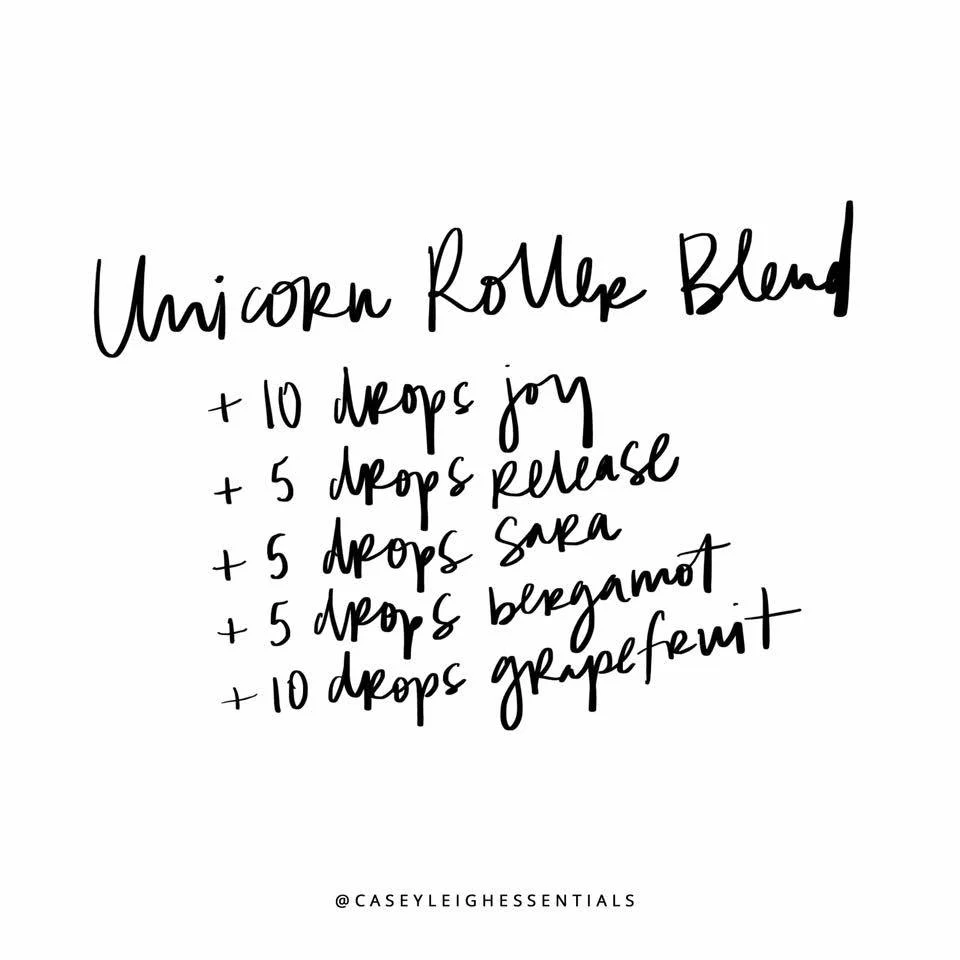 Unicorn Roller Blend
+ 10 drops joy
+ 5 drops release
+ 5 drops sara
+ 5 drops bergamot
+ 10 drops grapefruit
@CASEYLEIGHESSENTIALS